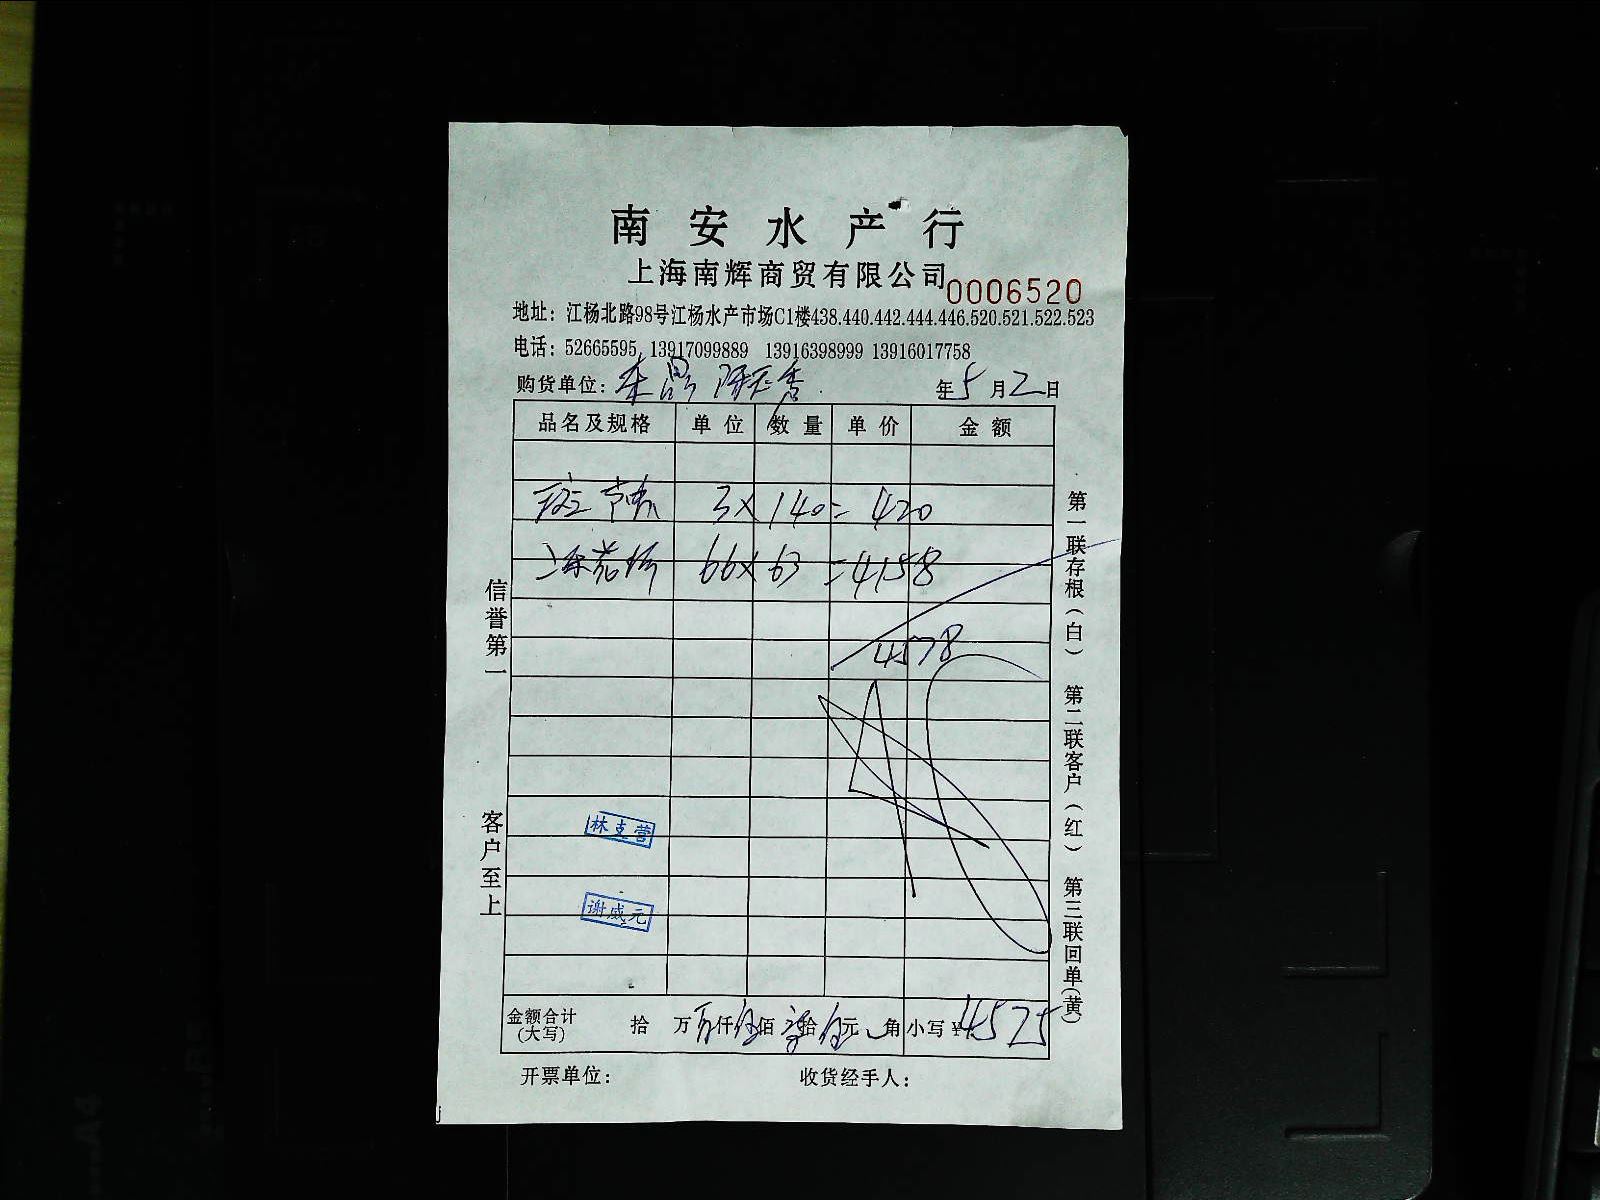 南安水产行
上海南辉商贸有限公司 0006520
地址：江杨北路98号江杨水产市场C1楼438.440.442.444.446.520.521.522.523
电话：52665595, 13917099889 13916398999 13916017758
购货单位： 年5月2日
品名及规格 单位 数量 单价 金额
3× 140= 420
66× 63 =4158
4578
信誉第一
客户至上
第一联存根（白） 第二联客户（红） 第三联回单（黄）
林支营
谢威元
金额合计（大写） 拾 万 仟伍佰 拾伍元 角 小写￥4575
开票单位： 收货经手人：